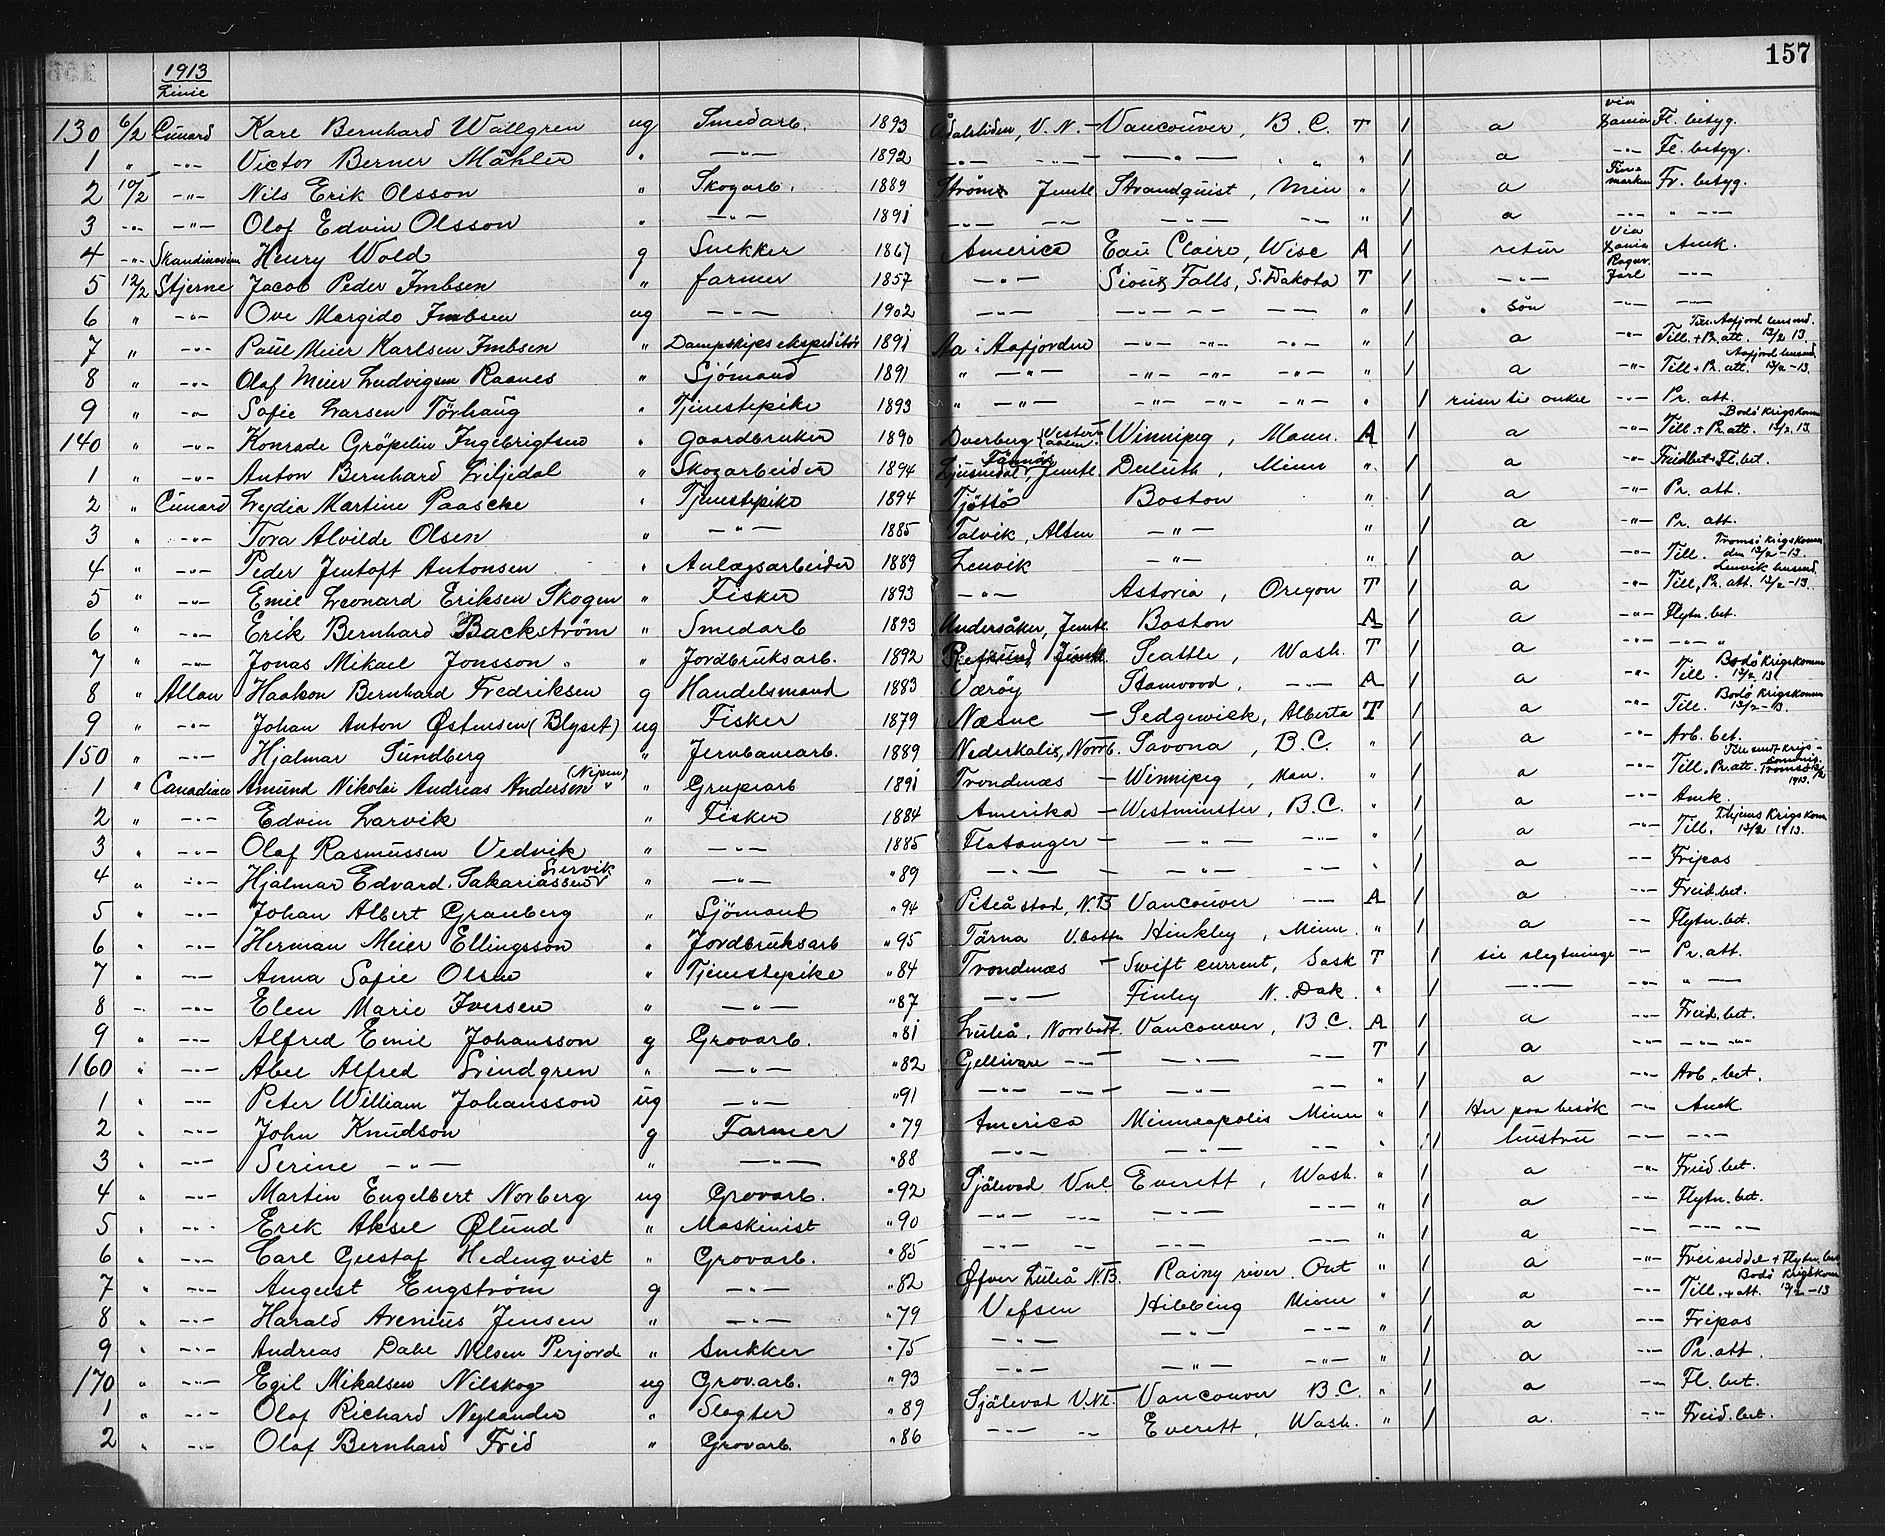 157
1913
Linie
130 6/2 Cunard Karl Bernhard Wallgren ug Smedarb. 1893 Ådalsliden, V. N. — Vancouver, B. C. T / a via Dania Fl. betyg.
1 " —"— Victor Berner Mähler " —"— 1892 —"— —"— —"— " " " / a —"— Fl. betyg.
2 10/2 —"— Nils Erik Olsson " Skogarb. 1889 Ströms Jemtl. Strandquist, Min " / a Finmarken Fr. betyg.
3 —"— —"— Olof Edvin Olsson " —"— 1891 —"— —"— —"— —"— " / a —"— " —"—
4 —"— Skandinavien Henry Wold g Snekker 1867 America Eau Claire, Wisc A / retur Via Dania Amk.
5 12/2 Stjerne Jacob Peder Imbsen " farmer 1857 —"— Sioux Falls, S. Dakota T / —"— Ragnv. Jarl —"—
6 " —"— Ove Margido Imbsen ug —"— 1902 —"— —"— —"— " / " sön —"— —"—
7 " —"— Paul Meier Karlsen Imbsen " Dampskipsekspeditör 1891 Aa i Aafjorden —"— —"— —"— " / a —"— Till. + Pr. att. Aafjord lensmd. 12/2 13.
8 " —"— Olaf Meier Ludvigsen Raanes " Sjömand 1891 " —"— —"— —"— —"— " / a —"— Till + Pr. att. Aafjord lensmd. 12/2-13.
9 " —"— Sofie Larsen Törhaug " Tjenestepike 1893 " —"— —"— —"— —"— " / reiser til onkel —"— Pr. att.
140 " —"— Konrade Gröpelin Ingebrigtsen " Gaardbruker 1890 Dverberg Vesteraalen Winnipeg, Mann. A / a —"— Till. + Pr. att. Bodö Krigskomm 12/2 13.
1 " —"— Anton Bernhard Liljedal " Skogarbeider 1894 Ljusnedal, Tännäs Jemtl. Duluth, Minn " / a —"— Freidbet + Fl. bet.
2 " Cunard Lydia Martine Paasche " Tjenestepike 1894 Tjöttö Boston " / a —"— Pr. att.
3 " —"— Tora Alvilde Olsen " —"— 1885 Talvik, Alten —"— " / a —"— Pr. att.
4 " —"— Peder Jentoft Antonsen " Anlægsarbeider 1889 Lenvik —"— " / a —"— Till. Tromsö Krigskomm den 12/2-13.
5 " —"— Emil Leonard Eriksen Skogen " Fisker 1893 —"— Astoria, Oregon T / a —"— Till, Pr. att. Lenvik lensmd. 12/2-13.
6 " —"— Erik Bernhard Backström " Smedarb 1893 Undersåker, Jemtl. Boston A / a —"— Flytn. bet.
7 " —"— Jonas Mikael Jonsson " Jordbruksarb. 1892 Refsund Jemtl. Seattle, Wash. T / a —"— —"— "
8 " Allan Haakon Bernhard Fredriksen g Handelsmand 1883 Værøy Stanwood, —"— A / a —"— Till. Bodö Krigskomm 12/2 13
9 " —"— Johan Anton Østensen (Blyset) ug Fisker 1879 Næsne — Sedgewick, Alberta T / a —"— Till. Bodö Krigskomm 13/2-13.
150 " —"— Hjalmar Sundberg " Jernbanearb. 1889 Nederkalix, Norrb. Savona, B.C. " / a —"— Arb. bet.
1 " Canadian Amund Nikolai Andreas Andersen (Nipen) " Grupearb 1891 Trondenæs — Winnipeg, Man. " / a —"— Till. Pr. att. Tromsö 1913.
2 " —"— Edvin Larvik " Fisker 1884 Amerika — Westminster, B.C. " / a —"— Amk.
3 " —"— Olaf Rasmussen Vedvik " —"— 1885 Flatanger — —"— —"— " / a —"— Till. Thjems Krigskom 13/2 1913.
4 " —"— Hjalmar Edvard Sakariassen Lervik " —"— "89 —"— — —"— —"— " / a —"— Fripas
5 " —"— Johan Albert Granberg " Sjömand "94 Piteå stad, N.B Vancouver —"— A / a —"— Freid. bet.
6 " —"— Herman Meier Ellingsson " Jordbruksarb "95 Tärna V. botten Hinkley, Minn. " / a —"— Flytn. bet.
7 " —"— Anna Sofie Olsen " Tjenestepike "84 Trondenæs — Swift current, Sask T / til slegtninge —"— Pr. att.
8 " —"— Elen Marie Iversen " —"— "87 —"— Finley N. Dak. " / —"— —"— " —
9 " —"— Alfred Emil Johansson g Grovarb. "81 Luleå, Norrbott. Vancouver, B.C. A / a —"— Freid. bet.
160 " —"— Abel Alfred Lindgren " —"— "82 Gellivare —"— —"— —"— T / a —"— —"— —"—
1 " —"— Peter William Johansson ug —"— "91 —"— —"— —"— —"— " / a —"— Arb. bet.
2 " —"— John Knudson g Farmer "79 America Minneapolis Minn " / Her paa besök —"— Amk
3 " —"— Serine —"— " —"— "88 —"— —"— —"— " / / hustru —"— —"—
4 " —"— Martin Engelbert Norberg ug Grovarb. "92 Själevad Vnl. Everett, Wash. " / a —"— Freid. bet.
5 " —"— Erik Aksel Ølund " Maskinist "90 —"— —"— —"— —"— " / a —"— Flytn. bet.
6 " —"— Carl Gustaf Hedenqvist " Grovarb. "85 —"— —"— —"— —"— " / a —"— —"— —"—
7 " —"— August Engström g —"— "82 Øfver Luleå N.B. Rainy river. Ont " / a —"— Freiseddel + Flytn. bet
8 " —"— Harald Arenius Jensen " —"— "79 Vefsen Hibbing Minn " / a —"— Till. + att. Bodö Krigskom 12/2-13
9 " —"— Andreas Dahl Nilsen Perjord " Snekker "75 —"— —"— —"— " / a —"— Fripas
170 " —"— Egil Mikalsen Nilskog ug Grovarb. "93 —"— —"— —"— " / a —"— Pr. att.
1 " —"— Olof Richard Nylander " Slagter "89 Själevad V.Nl. Vancouver B.C. " / a —"— Fl. bet.
2 " —"— Olof Bernhard Frid " Grovarb. "86 —"— —"— Everett, Wash. " / a. —"— Freid. bet.